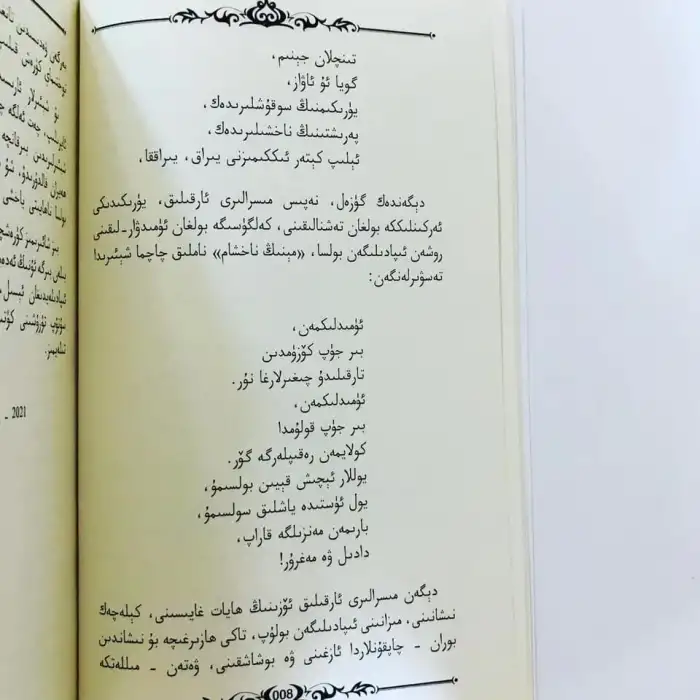 تىنچلان جېنىم،
گويا ئۇ ئاۋاز،
يۈرىكىمنىڭ سوقۇشلىرىدەك،
پەرىشتىنىڭ ناخشىلىرىدەك،
ئېلىپ كېتەر ئىككىمىزنى يىراق، يىراققا،
دېگەندەك گۈزەل، نەپىس مىسرالىرى ئارقىلىق، يۈرىكىدىكى
ئەركىنلىككە بولغان تەشنالىقىنى، كەلگۈسىگە بولغان ئۈمىدۋار-لىقىنى
روشەن ئىپادىلىگەن بولسا، «مېنىڭ ناخشام» ناملىق چاچما شېئىرىدا
تەسۋىرلەنگەن:
ئۈمىدلىكمەن،
بىر جۈپ كۆزۈمدىن
تارقىلىدۇ چىغىرلارغا نۇر.
ئۈمىدلىكمەن،
بىر جۈپ قولۇمدا
كولايمەن رەقىپلەرگە گۆر.
يوللار ئېچىش قىيىن بولسىمۇ،
يول ئۈستىدە ياشلىق سولسىمۇ،
بارىمەن مەنزىلگە قاراپ،
دادىل ۋە مەغرۇر!
دېگەن مىسرالىرى ئارقىلىق ئۆزىنىڭ ھايات غايىسىنى، كېلەچەك
نىشانىنى، مىزانىنى ئىپادىلىگەن بولۇپ، تاكى ھازىرغىچە بۇ نىشاندىن
بوران - چاپقۇنلاردا ئازغىنى ۋە بوشاشقىنى، ۋەتەن - مىللەتكە
008
2021 -